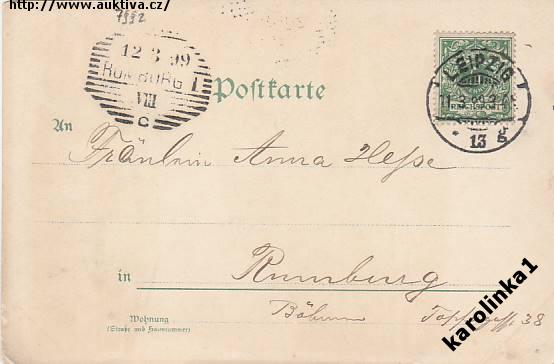 http://www.auktiva.cz/
7992
12 3 99
RUMBURG 1
VIII
C
LEIPZIG
REICHSPOST
13 g
Postkarte
An
Fräulein Anna Hesse
in
Rumburg
Böhmen
38
Wohnung
(Straße und Hausnummer)
karolinka1